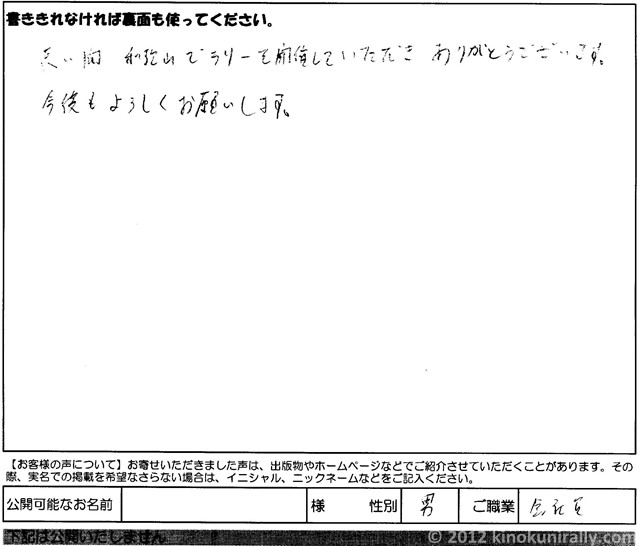 書ききれなければ裏面も使ってください。
長い間 和歌山でラリーを開催していただき ありがとうございます。
今後もよろしくお願いします。
【お客様の声について】お寄せいただきました声は、出版物やホームページなどでご紹介させていただくことがあります。その
際、実名での掲載を希望なさらない場合は、イニシャル、ニックネームなどをご記入ください。
公開可能なお名前 様 性別 男 ご職業 会社員
下記は公開いたしません
© 2012 kinokunirally.com